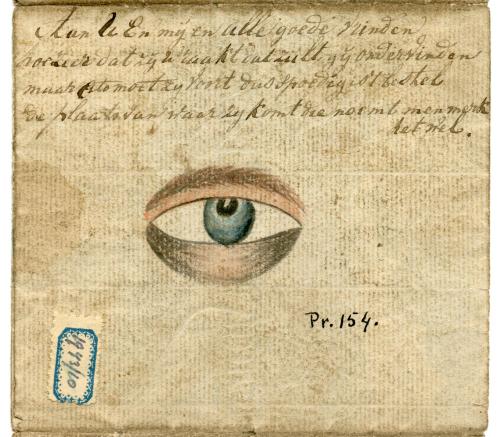 Aan U En mij en alle goede vrinden
hoezeer dat zij u raakt dat zult gij ondervinden
maar moet zy dus spoedig is't bestel
de plaats van waar zy komt die noemt men merk
het wel.
Pr. 154.